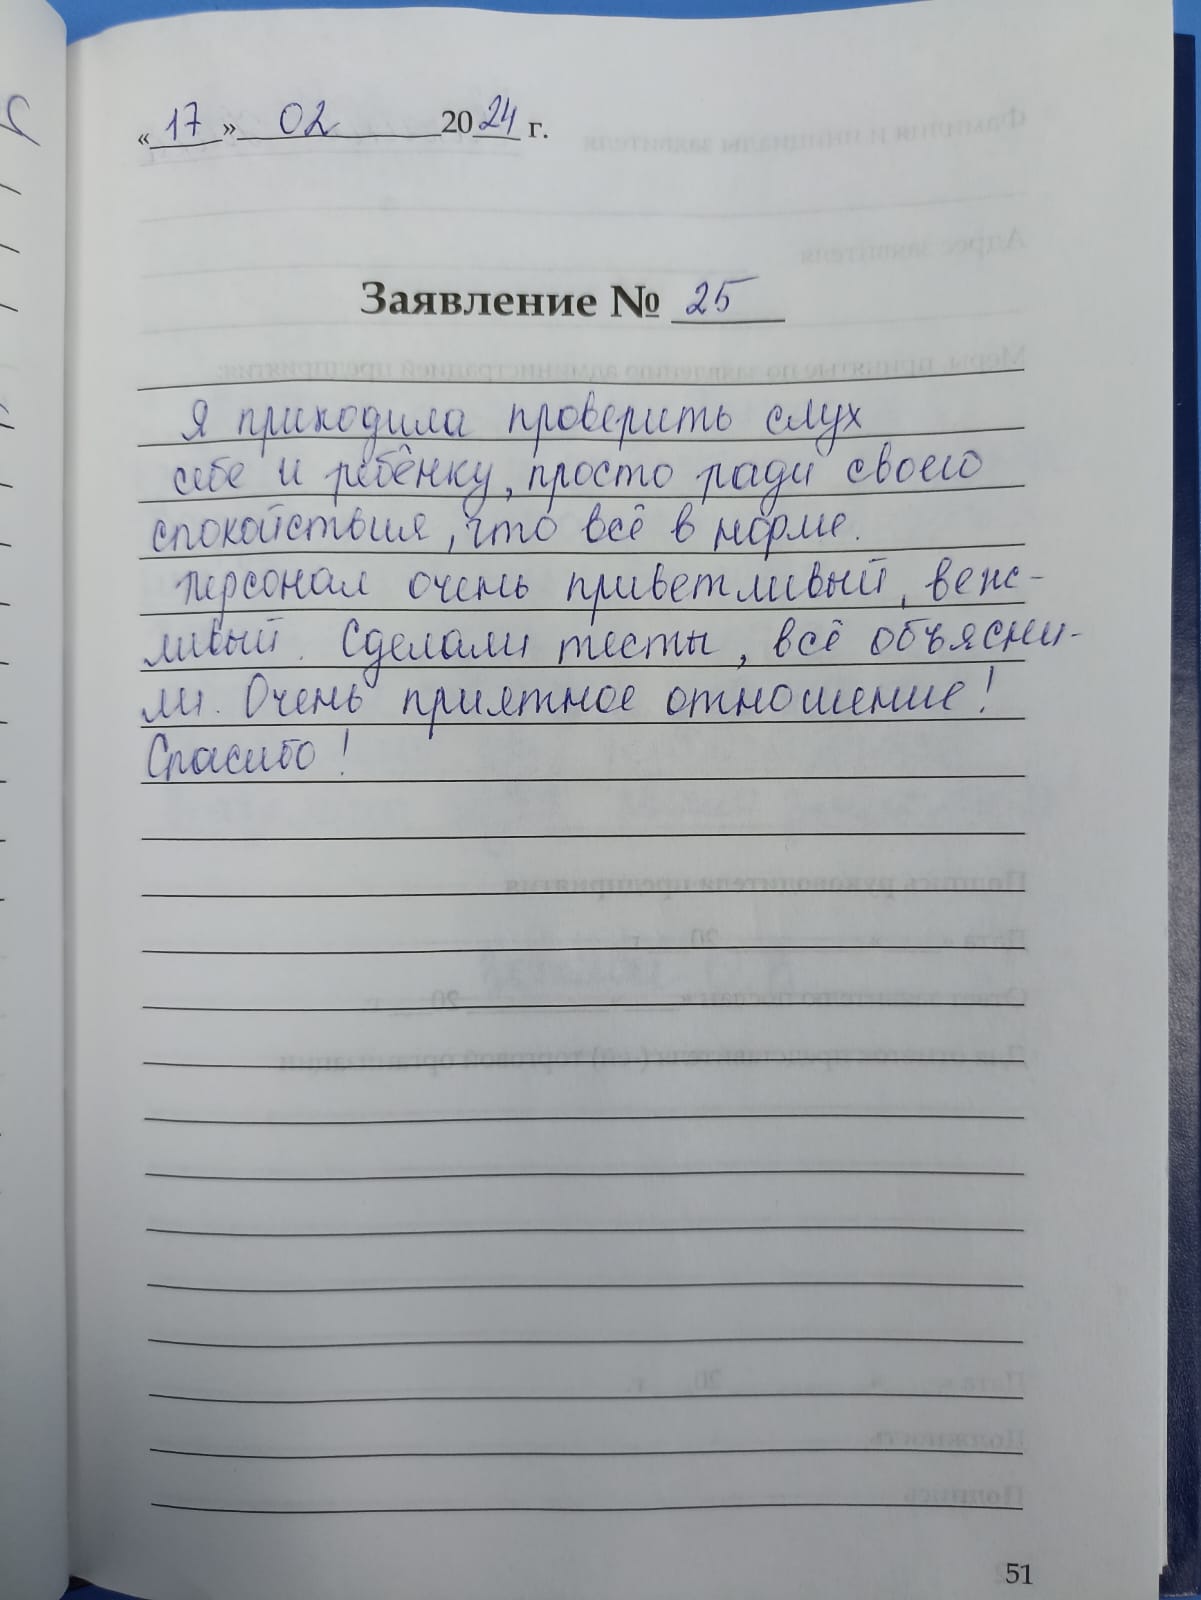 «17» 02 2024 г.
Заявление № 25
Я приходила проверить слух
себе и ребёнку, просто ради своего
спокойствия, что всё в норме.
Персонал очень приветливый, веж-
ливый. Сделали тесты, всё объясни-
ли. Очень приятное отношение!
Спасибо!
51